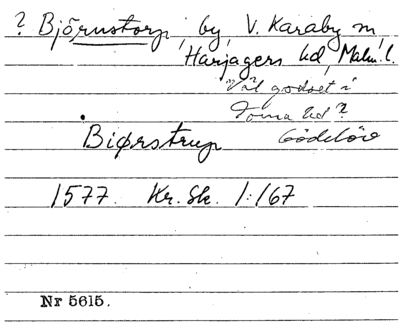 ? Björnstorp, by, V. Karaby sn
Harjagers hd, Malm. l.
Väl godset i
Torna hd?
Gödelöv
Biørstrup
1577. Kr. Sk. 1:167
Nr 5615.